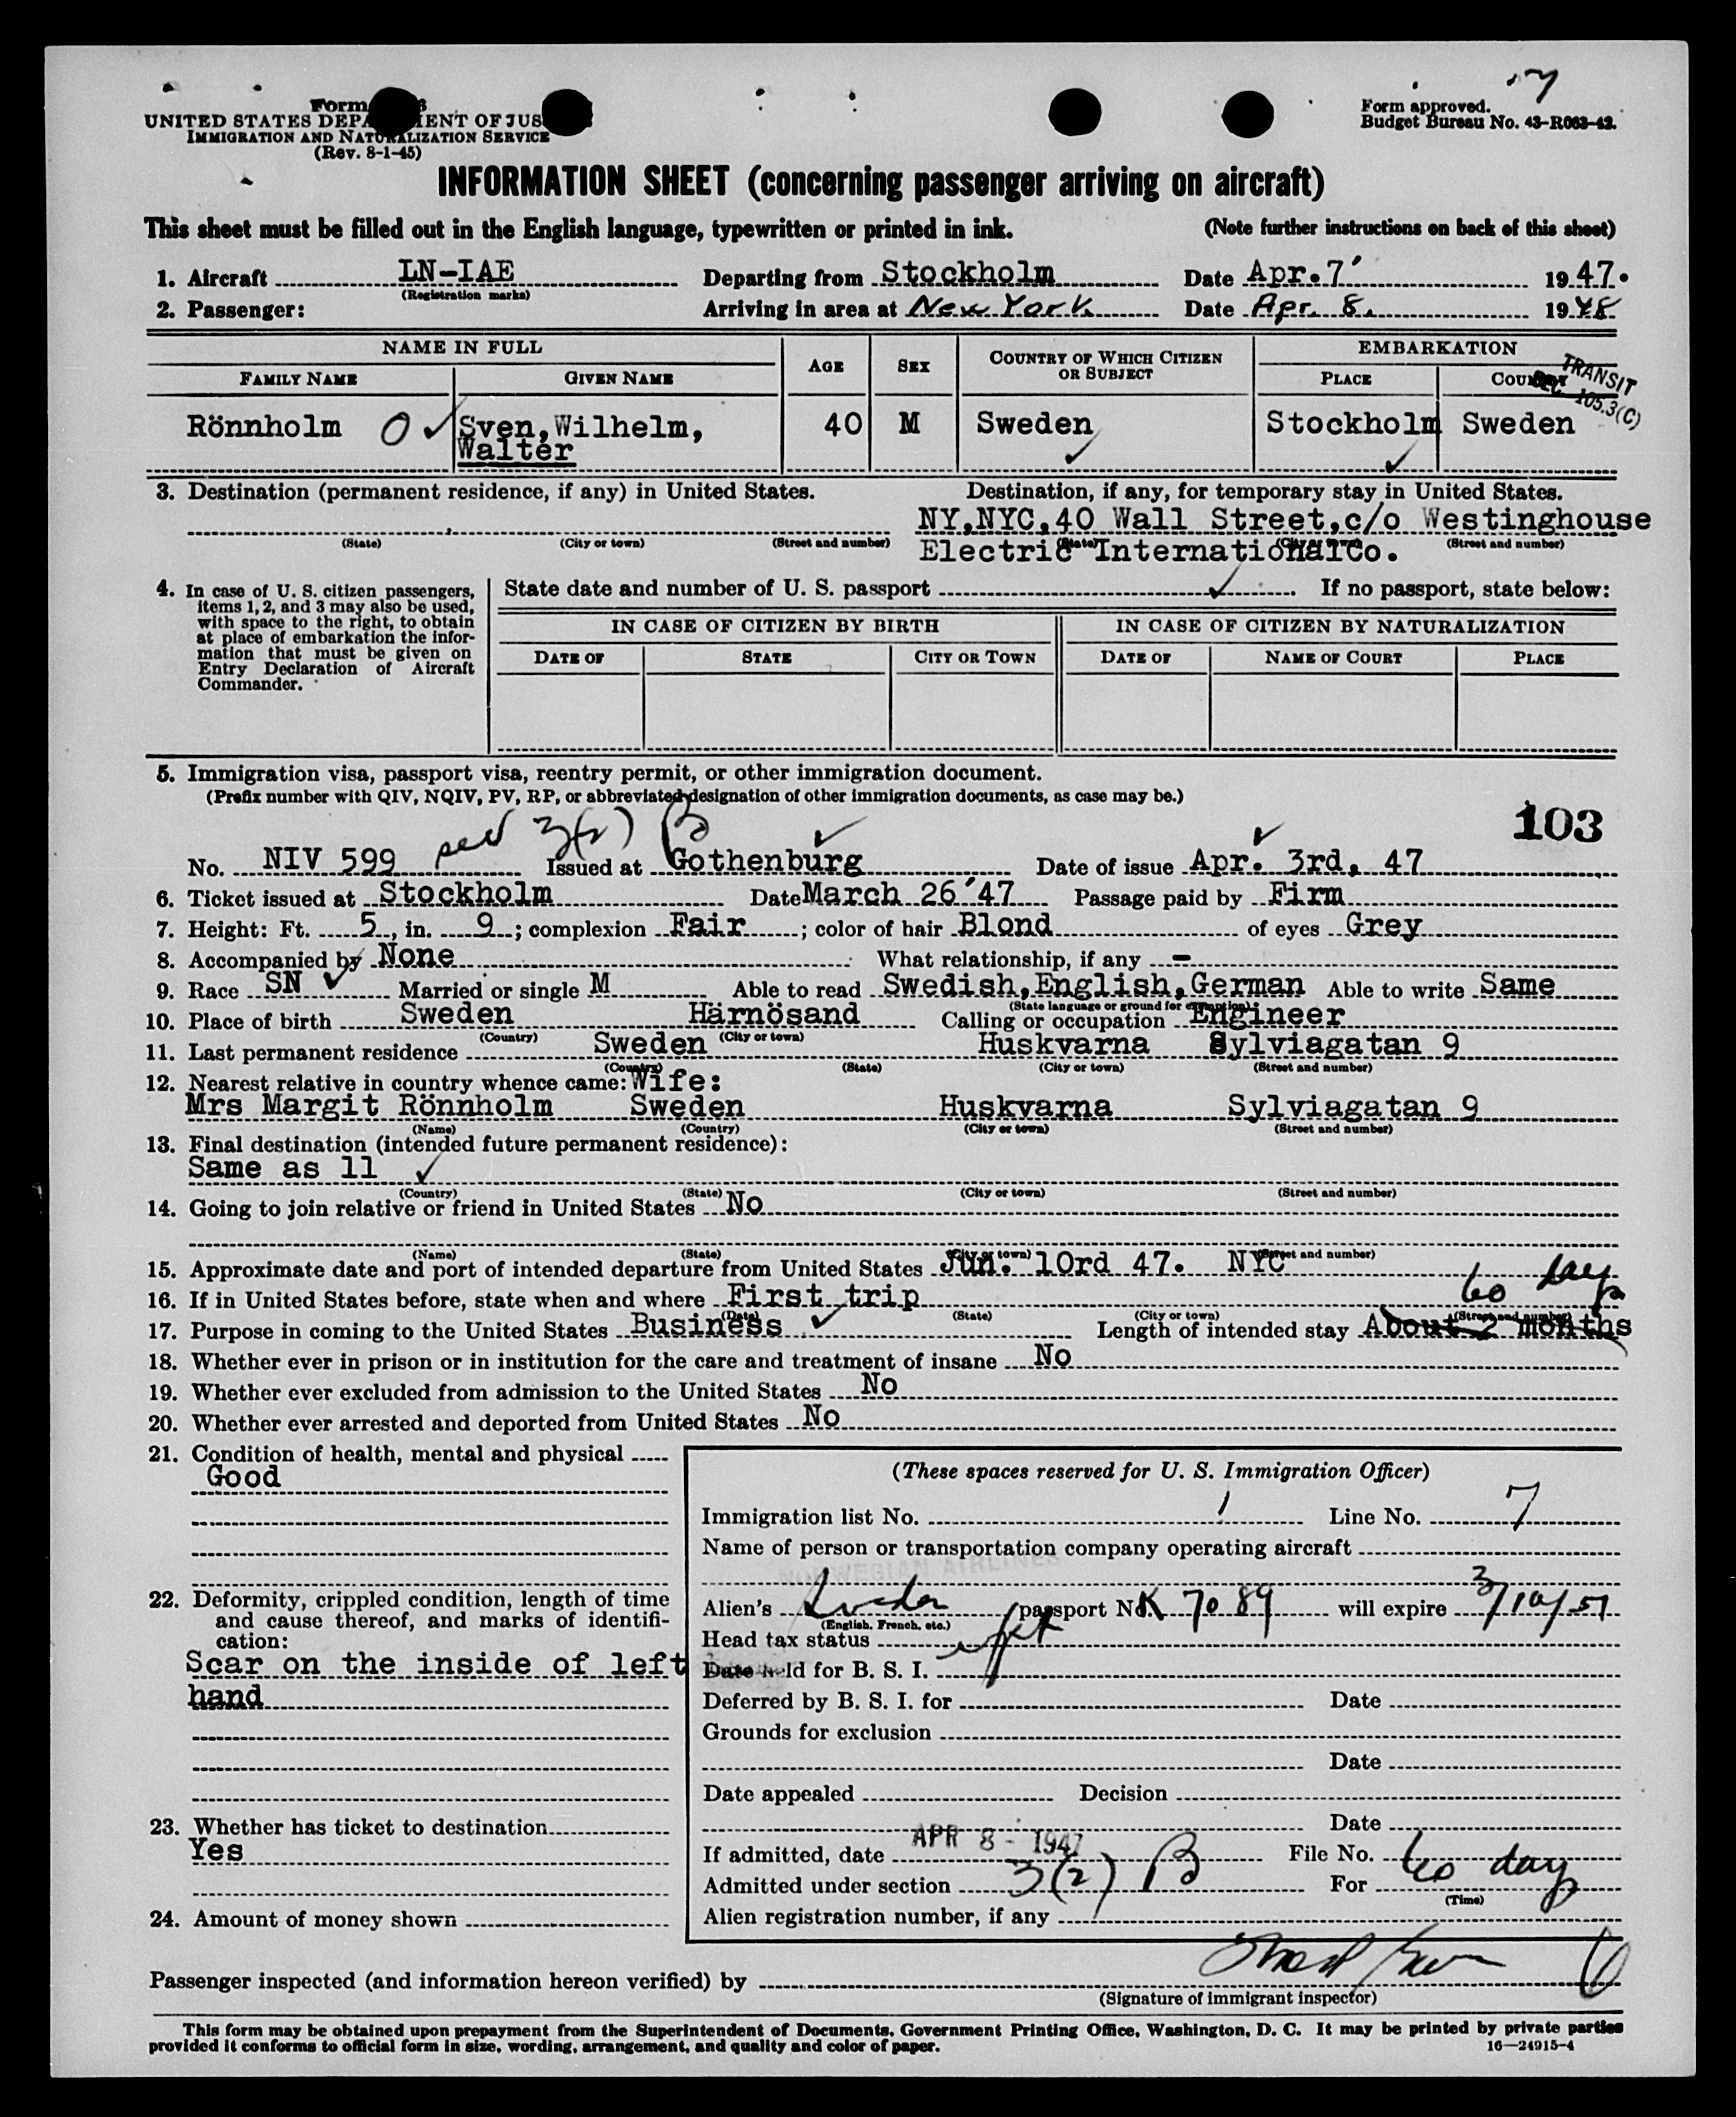 7
Form
UNITED STATES DEPARTMENT OF JUS
IMMIGRATION AND NATURALIZATION SERVICE
(Rev. 8-1-45)
Form approved.
Budget Bureau No. 43-R063-42.
INFORMATION SHEET (concerning passenger arriving on aircraft)
This sheet must be filled out in the English language, typewritten or printed in ink. (Note further instructions on back of this sheet)
1. Aircraft LN-IAE Departing from Stockholm Date Apr. 7' 1947.
(Registration marks)
2. Passenger: Arriving in area at New York Date Apr. 8. 1948
NAME IN FULL AGE SEX COUNTRY OF WHICH CITIZEN OR SUBJECT EMBARKATION
FAMILY NAME GIVEN NAME PLACE COUNTRY
TRANSIT
SEC. 105.3(C)
Rönnholm O Sven, Wilhelm, 40 M Sweden Stockholm Sweden
Walter
3. Destination (permanent residence, if any) in United States. Destination, if any, for temporary stay in United States.
NY, NYC, 40 Wall Street, c/o Westinghouse
(State) (City or town) (Street and number) (State) (City or town) (Street and number)
Electric International Co.
4. In case of U. S. citizen passengers, items 1, 2, and 3 may also be used, with space to the right, to obtain at place of embarkation the information that must be given on Entry Declaration of Aircraft Commander.
State date and number of U. S. passport If no passport, state below:
IN CASE OF CITIZEN BY BIRTH IN CASE OF CITIZEN BY NATURALIZATION
DATE OF STATE CITY OR TOWN DATE OF NAME OF COURT PLACE
5. Immigration visa, passport visa, reentry permit, or other immigration document.
(Prefix number with QIV, NQIV, PV, RP, or abbreviated designation of other immigration documents, as case may be.)
103
3(2) B
No. NIV 599 Issued at Gothenburg Date of issue Apr. 3rd, 47
6. Ticket issued at Stockholm Date March 26'47 Passage paid by Firm
7. Height: Ft. 5, in. 9; complexion Fair; color of hair Blond of eyes Grey
8. Accompanied by None What relationship, if any -
9. Race SN Married or single M Able to read Swedish, English, German Able to write Same
(State language or ground for exemption)
10. Place of birth Sweden Härnösand Calling or occupation Engineer
(Country) (City or town)
11. Last permanent residence Sweden Huskvarna Sylviagatan 9
(Country) (State) (City or town) (Street and number)
12. Nearest relative in country whence came: Wife:
Mrs Margit Rönnholm Sweden Huskvarna Sylviagatan 9
(Name) (Country) (City or town) (Street and number)
13. Final destination (intended future permanent residence):
Same as 11
(Country) (State) (City or town) (Street and number)
14. Going to join relative or friend in United States No
(Name) (State) (City or town) (Street and number)
15. Approximate date and port of intended departure from United States Jun. 10rd 47. NYC
60 days
16. If in United States before, state when and where First trip
(Date) (State) (City or town) (Street and number)
17. Purpose in coming to the United States Business Length of intended stay About 2 months
18. Whether ever in prison or in institution for the care and treatment of insane No
19. Whether ever excluded from admission to the United States No
20. Whether ever arrested and deported from United States No
21. Condition of health, mental and physical
Good
22. Deformity, crippled condition, length of time and cause thereof, and marks of identification:
Scar on the inside of left
hand
23. Whether has ticket to destination
Yes
24. Amount of money shown
(These spaces reserved for U. S. Immigration Officer)
Immigration list No. 1 Line No. 7
Name of person or transportation company operating aircraft
NORWEGIAN AIRLINES
Alien's Sweden passport No. K 7089 will expire 3/10/51
(English, French, etc.)
Head tax status
Date held for B. S. I.
Deferred by B. S. I. for Date
Grounds for exclusion
Date
Date appealed Decision
Date
If admitted, date APR 8 - 1947 File No.
Admitted under section 3(2) B For 60 days
(Time)
Alien registration number, if any
Passenger inspected (and information hereon verified) by
(Signature of immigrant inspector)
This form may be obtained upon prepayment from the Superintendent of Documents, Government Printing Office, Washington, D. C. It may be printed by private parties
provided it conforms to official form in size, wording, arrangement, and quality and color of paper. 16—24915-4